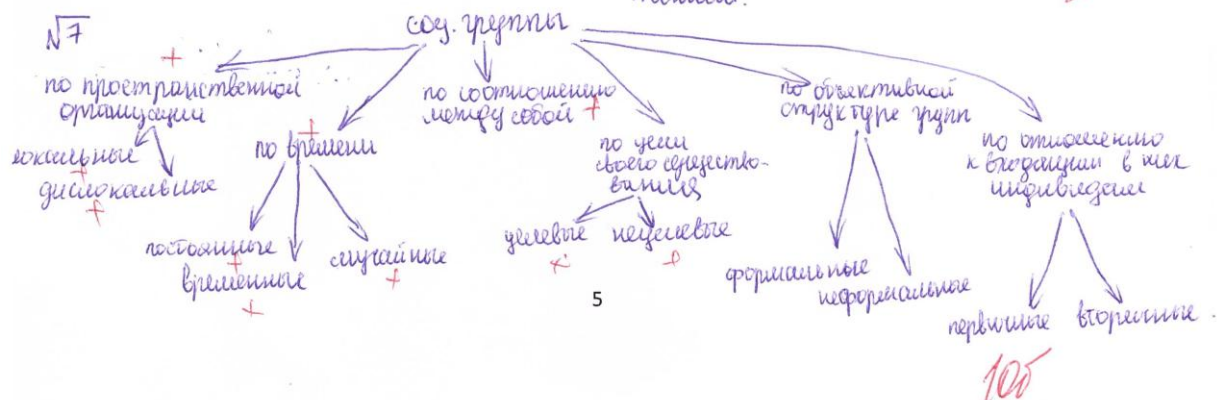 √7
соц. группы
по пространственной
организации
локальные
дислокальные
по времени
постоянные
временные
случайные
по соотношению
между собой
по цели
своего существо-
вания
целевые нецелевые
по объективной
структуре групп
формальные
неформальные
по отношению
к входящим в них
индивидам
первичные вторичные.
5
10б